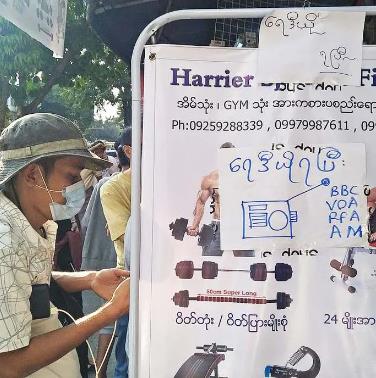 ရေဒီယို
ရပြီ
Harrier
အိမ်သုံး ၊ GYM သုံး အားကစားပစ္စည်းရော
Ph:09259288339 , 09979987611 , 09
ရေဒီယိုရပြီ
BBC
VOA
RFA
AM
50cm Super Long
ဝိတ်တုံး / ဝိတ်ပြားမျိုးစုံ
24 မျိုးအား